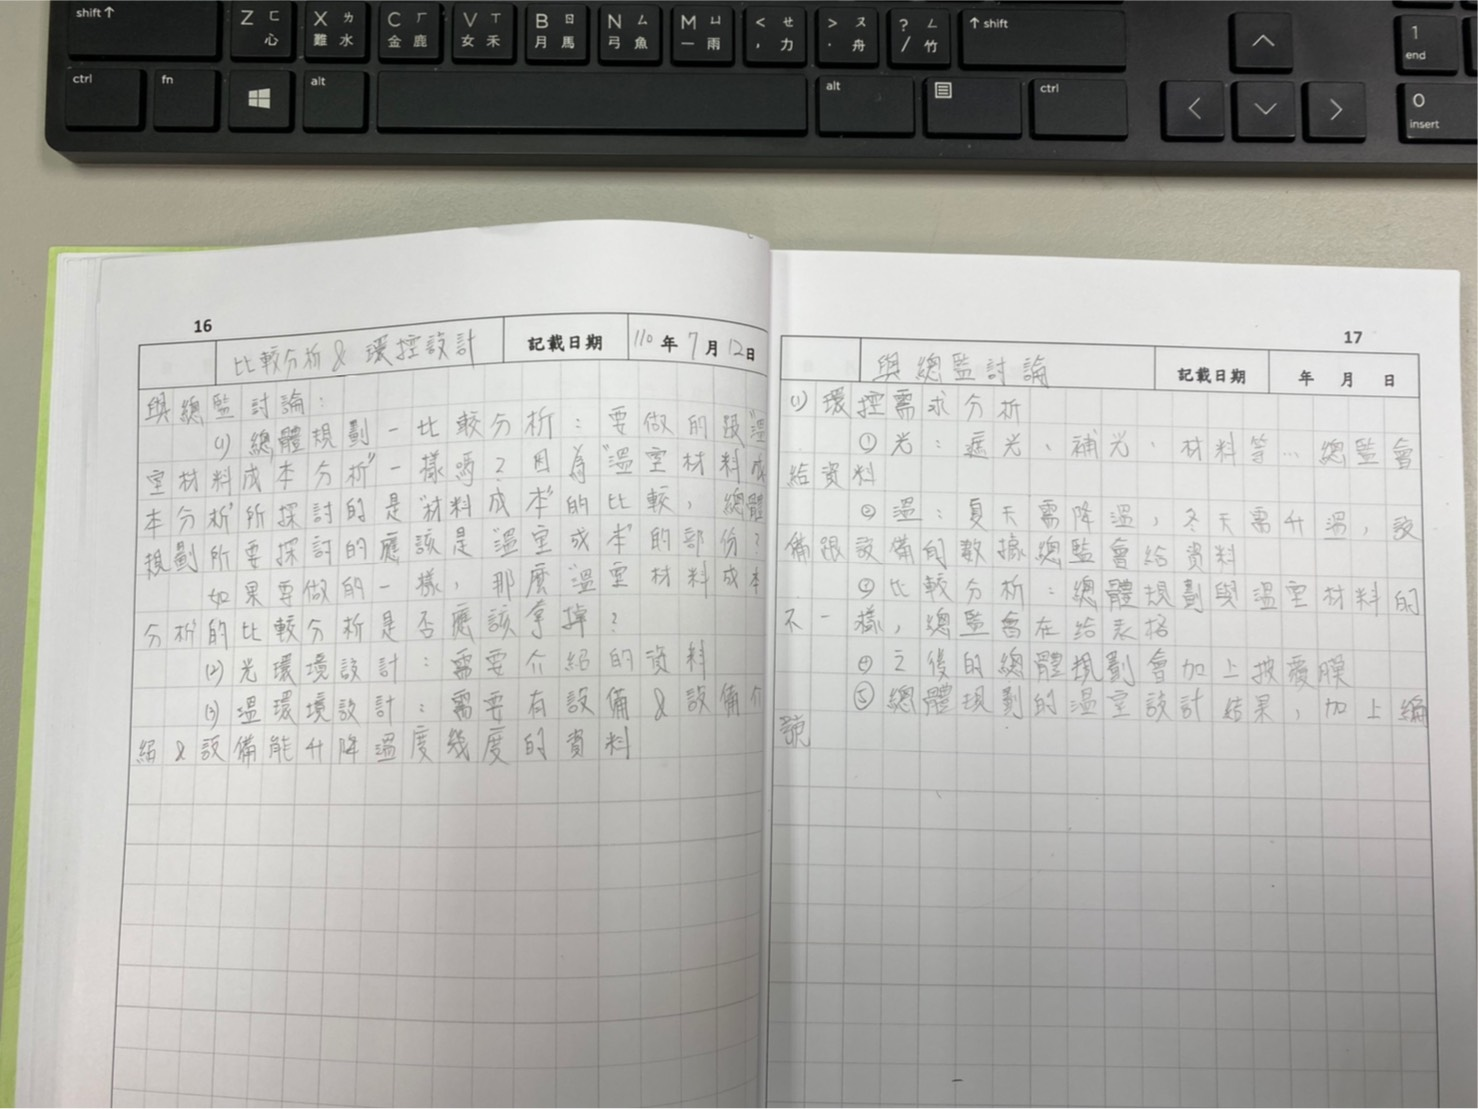 shift ↑ Z ㄈ 心 X ㄌ 難 水 C ㄏ 金 鹿 V ㄒ 女 禾 B ㄖ 月 馬 N ㄙ 弓 魚 M ㄩ 一 雨 < , ㄝ 力 > . ㄡ 舟 ? / ㄥ 竹 ↑ shift 1 end
ctrl fn alt alt ctrl 0 insert
16
比較分析 & 環控設計 記載日期 110年7月12日
與總監討論:
(1) 總體規劃-比較分析:要做的跟"溫
室材料成本分析"一樣嗎?因為"溫室材料成
本分析"所探討的是"材料成本"的比較,總體
規劃所要探討的應該是"溫室成本"的部份?
如果要做的一樣,那麼"溫室材料成本
分析"的比較分析是否應該拿掉?
(2) 光環境設計:需要介紹的資料
(3) 溫環境設計:需要有設備&設備介
紹&設備能升降溫度幾度的資料
17
與總監討論 記載日期 年 月 日
(1) 環控需求分析
① 光:遮光、補光、材料等…總監會
給資料
② 溫:夏天需降溫,冬天需升溫,設
備跟設備的數據總監會給資料
③ 比較分析:總體規劃與溫室材料的
不一樣,總監會在給表格
④ 之後的總體規劃會加上披覆膜
⑤ 總體規劃的溫室設計結果,加上編
號